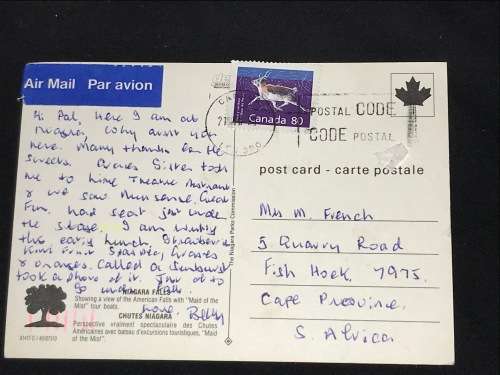 Air Mail Par avion
Hi Pal, Here I am at
Niagra, Why arent you
here. Many thanks for the
sweets. Sister took
me to Theatre
& we saw Nunsense, Great
Fun. had seat just under
the stage. I am writing
this early lunch, Strawberries
Kiwi Fruit Grapes
& oranges. Called a Sunburst
took a photo of it. Just off to
go under Falls.
Love. Betty
NIAGARA FALLS
Showing a view of the American Falls with "Maid of the
Mist" tour boats.
CHUTES NIAGARA
Perspective vraiment spectaculaire des Chutes
Américaines avec bateau d'excursions touristiques, "Maid
of the Mist".
The Niagara Parks Commission
Canada 80
POSTAL CODE
CODE POSTAL
post card - carte postale
Mrs M. French
5 Quarry Road
Fish Hoek. 7975.
Cape Province.
S. Africa